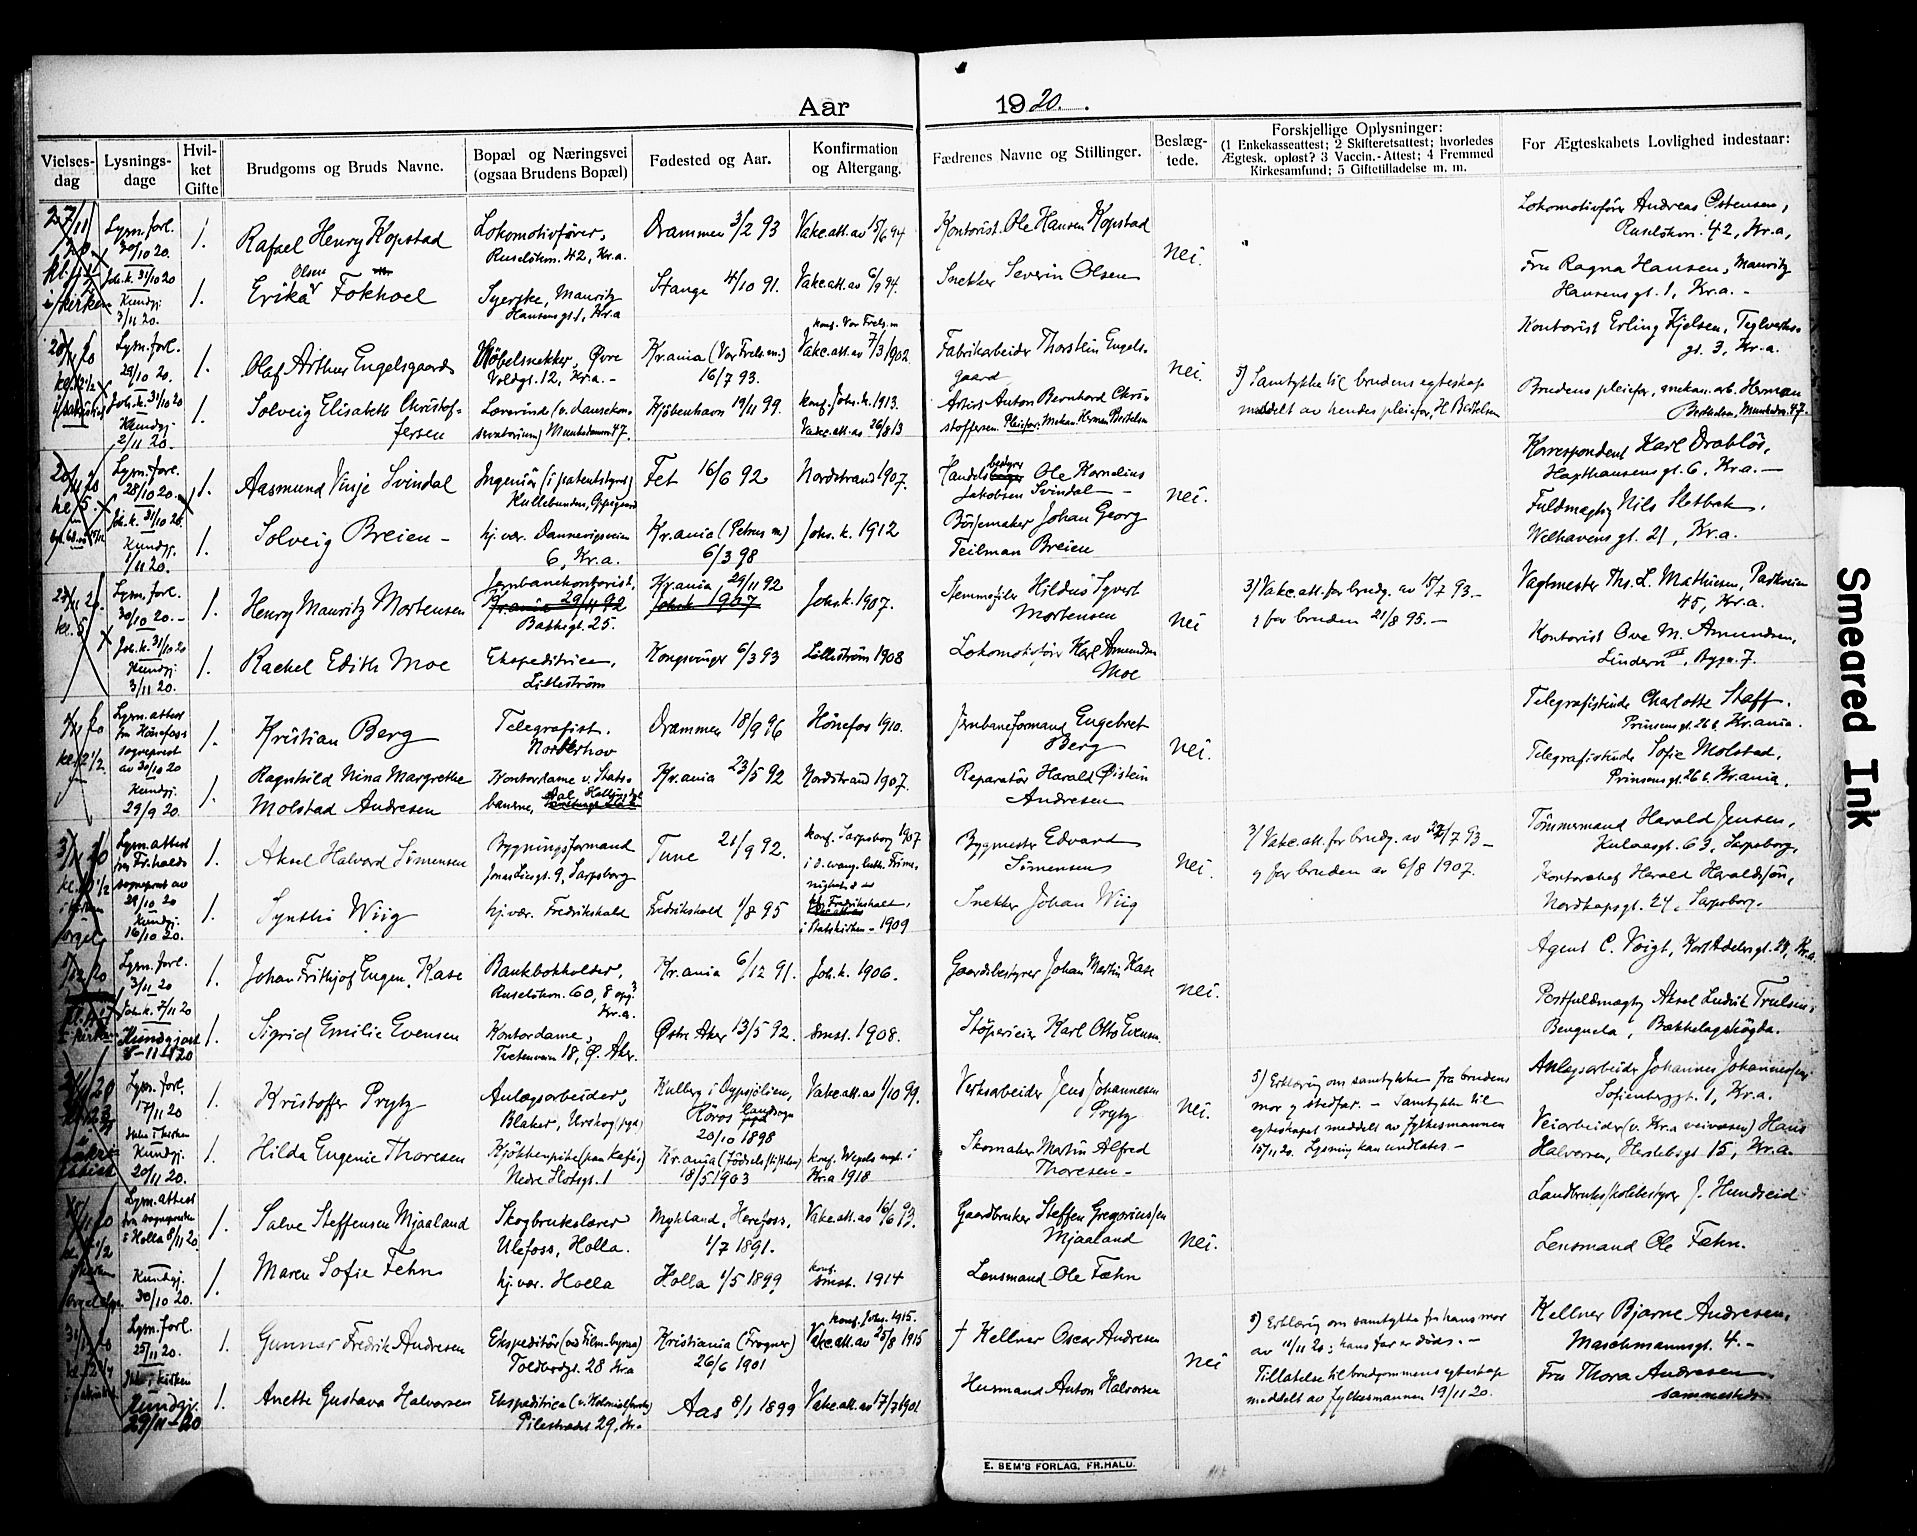 Aar 1920.
Vielses-dag
Lysnings-dage
Hvil-ket Gifte
Brudgoms og Bruds Navne.
Bopæl og Næringsvei (ogsaa Brudens Bopæl)
Fødested og Aar.
Konfirmation og Altergang.
Fædrenes Navne og Stillinger.
Beslæg-tede.
Forskjellige Oplysninger:
(1 Enkekasseattest; 2 Skifteretsattest; hvorledes
Ægtesk. opløst? 3 Vaccin.-Attest; 4 Fremmed
Kirkesamfund; 5 Giftetilladelse m. m.
For Ægteskabets Lovlighed indestaar:
27/11
Lysn. forl. 30/10 20.
1.
Rafael Henry Kopstad
Lokomotivfører,
Ruseløkvn. 42, Kr.a.
Drammen 3/2 93
Vakc.att. av 15/6 94
Kontorist Ole Hansen Kopstad
Nei.
Lokomotivfører Andreas Ostensen,
Ruseløkvn. 42, Kr.a,
Joh. k. 31/10 20
Kundgj. 3/11 20.
1.
Olsen
Erika Fokhoel
Syerske, Mauritz
Hansens gt. 1, Kr.a
Stange 4/10 91.
Vakc.att. av 6/9 94.
Snekker Severin Olsen
Fru Ragna Hansen, Mauritz
Hansens gt. 1, Kr.a. -
Lysn. forl. 29/10 20.
1.
Olaf Arthur Engelsgaard
Møbelsnekker, Øvre
Voldgt. 12, Kr.a. -
Kr.ania (Vor Frels. m.)
16/7 93.
konf. Vor Frels. m
Vakc.att. av 7/3 1902.
Fabrikarbeider Thorstein Engels-
gaard
Nei.
Kontorist Erling Kjelsen, Teglverks-
gt. 3, Kr.a.
Joh. k. 31/10 20
Kundgj. 2/11 20.
1.
Solveig Elisabeth Christof-
fersen
Lærerinde (v. dansekon-
servatorium) Munkedamsv. 47.
Kjøbenhavn 19/11 99.
konf. Johs. k. 1913.
Vakc.att. av 26/8 13
Artist Anton Bernhard Chri-
stoffersen. Pleiefar: Mekan. Herman Bertelsen
5) Samtykke til brudens egteskap
meddelt av hendes pleiefar, H Bertelsen
Brudens pleiefar, mekan. arb. Herman
Bertelsen, Munkedsv. 47.
Lysn. forl. 28/10 20.
1.
Aasmund Vinje Svindal
Ingeniør (i patentstyret)
Kullebunden, Oppegaard
Fet 16/6 92
Nordstrand 1907.
Handelsbestyrer Ole Kornelius
Jakobsen Svindal -
Nei.
Korrespondent Karl Drabløs,
Haxthausens gt. 6, Kr.a. -
Joh. k. 31/10 20.
Kundgj. 1/11 20.
1.
Solveig Breien -
hj. vær. Dannevigsveien
6, Kr.a.
Kr.ania (Petrus m)
6/3 98
Johs. k. 1912
Børsemaker Johan Georg
Teilman Breien
Fuldmægtig Nils Sletbak,
Welhavens gt. 21, Kr.a.
Lysn. forl. 30/10 20. -
1.
Henry Mauritz Mortensen
Jernbanekontorist,
Kr.ania 29/11 92
Bakkegt. 25.
Kr.ania 29/11 92
Johs.k 1907
Johs.k. 1907.
Stemmefiler Hildus Syvert
Mortensen
Nei
3) Vakc.att. for brudg. av 15/7 93. -
& for bruden 21/8 95. -
Vagtmester Ths. L. Mathiesen, Parkveien
45, Kr.a.
Joh. k. 31/10 20
Kundgj. 3/11 20.
1.
Rachel Edith Moe
Ekspeditrice,
Lilleström
Kongsvinger 6/3 93
Lilleström 1908
Lokomotivfører Karl Amundsen
Moe
Kontorist Ove M. Amundsen,
Lindern III, Bygn. 7.
Lysn. attest fra Hönefoss sogneprest av 30/10 20
1.
Kristian Berg
Telegrafist.
Norderhov
Drammen 18/9 96
Hönefos 1910.
Jernbaneformand Engebret
Berg
Nei.
Telegrafistinde Charlotte Staff.
Prinsens gt. 26 b. Kr.ania.
Kundgj. 29/9 20.
1.
Ragnhild Nina Margrethe
Molstad Andresen
Kontordame v. Stats-
banerne,
Kr.ania 23/5 92
Nordstrand 1907.
Reparatör Harald Øistein
Andresen
Telegrafistinde Sofie Molstad,
Prinsens gt. 26 b. Kr.ania.
Lysn. attest fra Fr.halds sogneprest av 29/10 20
1.
Aksel Halvard Simensen
Bygningsformand
Jonas Lies gt. 9, Sarpsborg
Tune 21/9 92.
konf. Sarpsborg 1907
i d. evang. luth. Frime-
nighet
Bygmester Edvard
Simensen
Nei.
3) Vakc.att. for brudg. av 27/7 93 -
& for bruden av 6/8 1907.
Tömmermand Harald Jensen,
Kulaasgt. 63, Sarpsborg,
Kundgj. 16/10 20.
1.
Synthi Wiig
hj. vær. Fredrikshald
Fredrikshald 1/8 95
Fredrikshald,
i Statskirken - 1909
Snekker Johan Wiig
Kontorchef Harald Haraldssøn,
Nordkapsgt. 24, Sarpsborg.
Lysn. forl. 3/11 20
1.
Johan Frithjof Eugen Kase
Bankbokholder,
Ruseløkvn. 60, 8 opg.
Kr.a.
Kr.ania 6/12 91.
Joh.k. 1906.
Gaardsbestyrer Johan Martin Kase
Nei.
Agent C. Voigt, Kort Adelersgt. 24, Kr.a.
Joh.k. 7/11 20
Kundgjort 8-11-1920
1.
Sigrid Emilie Evensen
Kontordame,
Tvetenveien 18, Ø. Aker.
Østre Aker 13/5 92.
smst. 1908.
Støperieier Karl Otto Evensen.
Postfuldmægtig Aksel Ludvik Trulsen,
Benguela, Bækkelagshögda.
Lysn. forl. 17/11 20
1.
Kristoffer Prytz
Anlægsarbeider,
Blaker, Urskog (pgd)
Kulberg i Oypsjölien,
Röros landsogn
20/10 1898
Vakc.att. av 1/10 99.
Verksarbeider Jens Johannesen
Prytz
Nei.
5) Erklæring om samtykke fra brudens
mor & stedfar. - Samtykke til
egteskapet meddelt av fylkesmannen
15/11 20. Lysning kan undlates -
Anlægsarbeider Johannes Johannessen,
Sofienberggt. 1, Kr.a.
Kundgj. 20/11 20.
1.
Hilda Eugenie Thoresen
Kjökkenpike (paa kafé)
Nedre Slotsgt. 1
Kr.ania (Fødselsstiftelsen)
18/5 1903
konf. Wegels mgh. i
Kr.a 1918
Skomaker Martin Alfred
Thoresen -
Veiarbeider (v. Kr.a veivæsen) Hans
Halvorsen, Herslebsgt 15, Kr.a.
Lysn. attest fra sogneprsten i Holla 8/11 20.
1.
Salve Steffensen Mjaaland
Skogbrukslærer
Ulefoss, Holla.
Mykland, Herefoss,
1/7 1891.
Vakc.att. av 16/6 93.
Gaardbruker Steffen Gregoriussen
Mjaaland
Nei.
Landbruksskolebestyrer J. Hundseid
Kundgj. 30/10 20.
1.
Maren Sofie Fehn
hj. vær. Holla
Holla 1/5 1899
konf.
smst. 1914
Lensmand Ole Fæhn
Lensmand Ole Fæhn.
Lysn. forl. 25/11 20.
1.
Gunnar Fredrik Andresen
Ekspeditör (ved Film.byraa)
Toldbodgt. 28 Kr.a
Kristiania (Frogner)
26/6 1901
konf. Johs. 1915.
Vakc.att. av 25/8 1915
† Kellner Oscar Andresen
Nei
5) Erklæring om samtykke fra hans mor
av 11/11 20; hans far er död. -
Kellner Bjarne Andresen,
Maschmannsgt. 4. -
Kundgj. 29/11-20
1.
Anette Gustava Halvorsen
Ekspeditrice (v. Kolonialforr.)
Pilestrædet 29, Kr.a
Aas 8/1 1899
Vakc.att. av 17/7 1901
Husmand Anton Halvorsen
Tillatelse til brudgommens egteskap
meddelt av fylkesmannen 19/11 20.
Fru Thora Andresen
sammesteds
E. SEM'S FORLAG, FR.HALD.
Smeared Ink